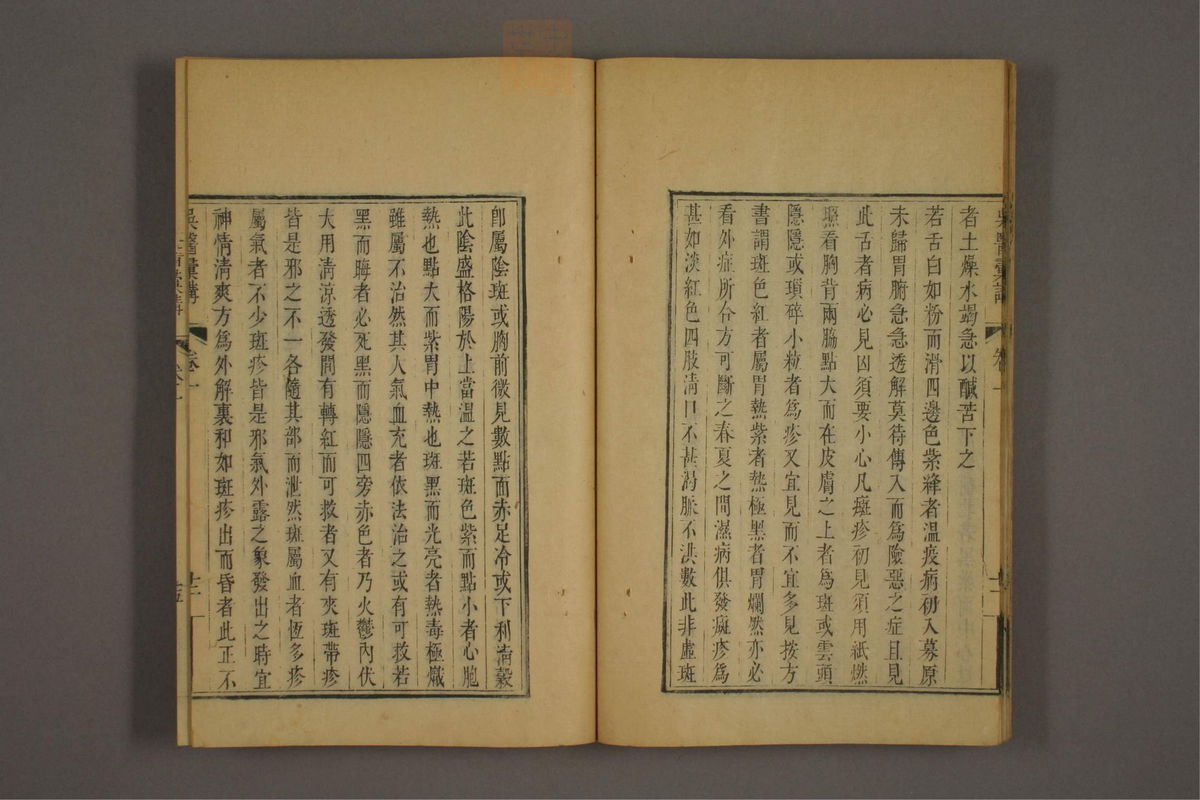 吳醫彙講
卷一
者土燥水竭急以鹹苦下之
若舌白如粉而滑四邊色紫絳者溫疫病初入募原
未歸胃腑急急透解莫待傳入而為險惡之症且見
此舌者病必見凶須要小心凡斑疹初見須用紙燃
照看胸背兩脇點大而在皮膚之上者為斑或雲頭
隱隱或瑣碎小粒者為疹又宜見而不宜多見按方
書謂斑色紅者屬胃熱紫者熱極黑者胃爛然亦必
看外症所合方可斷之春夏之間濕病俱發斑疹為
甚如淡紅色四肢清口不甚渴脈不洪數此非虛斑
卽屬陰斑或胸前微見數點面赤足冷或下利淸穀
此陰盛格陽於上當溫之若斑色紫而點小者心胞
熱也點大而紫胃中熱也斑黑而光亮者熱毒極熾
雖屬不治然其人氣血充者依法治之或有可救若
黑而晦者必死黑而隱隱四旁赤色者乃火鬱內伏
大用淸涼透發間有轉紅而可救者又有夾斑帶疹
皆是邪之不一各隨其部而泄然斑屬血者恆多疹
屬氣者不少斑疹皆是邪氣外露之象發出之時宜
神情淸爽方為外解裏和如斑疹出而昏者此正不
吳醫彙講
卷一